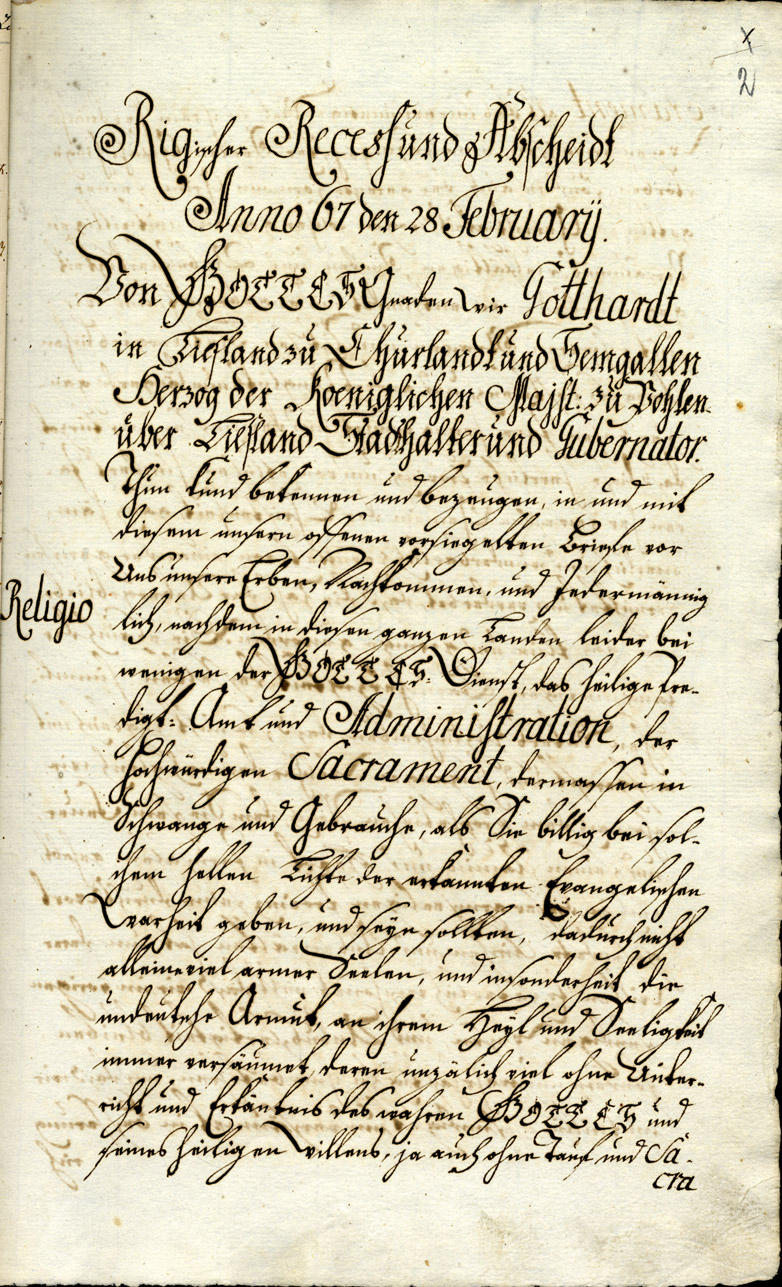 x
2
Rigischer Recess und Abscheidt
Anno 67 den 28 February.
Von GOTTES Gnaden wir Gotthardt
in Liefland zu Churlandt und Semgallen
Herzog der Koeniglichen Majst: zu Pohlen
über Liefland Stadthalter und Gubernator.
Thun kund bekennen und bezeugen, in und mit
diesem unsern offenen versiegelten Briefe vor
Uns unsere Erben, Nachkommen, und Jedermännig
Religio
lich, nachdem in diesen ganzen Landen leider bei
wenigen der GOTTES: Dienst, das heilige Pre-
digt: Amt und Administration, der
hochwürdigen Sacrament, dermassen in
Schwange und Gebrauche, als Sie billig bei sol-
chem hellen Lichte der erkannten Evangelischen
warheit geben, und seyn sollten, dadurch nicht
alleine viel armer Seelen, und insonderheit die
undeutsche Armut, an ihrem Heyl und Seeligkeit
immer versäumet, deren unzälich viel ohne Unter-
richt und Erkäntnis des wahren GOTTES und
seines heiligen willens, ja auch ohne Tauf und Sa-
cra